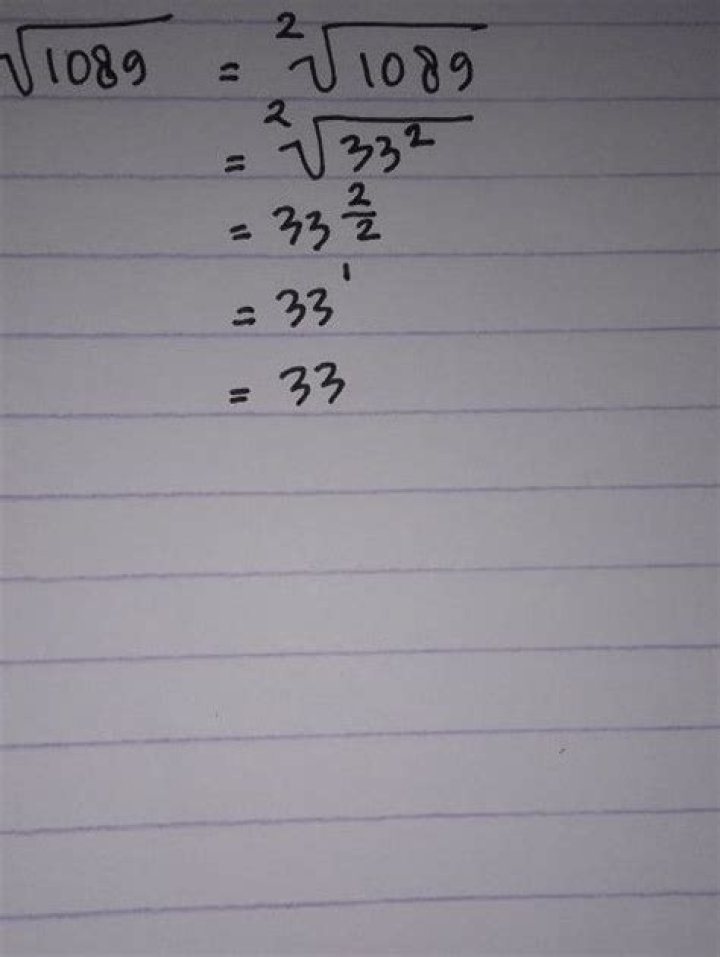 √1089 = ²√1089
= ²√33²
= 33^(2/2)
= 33¹
= 33